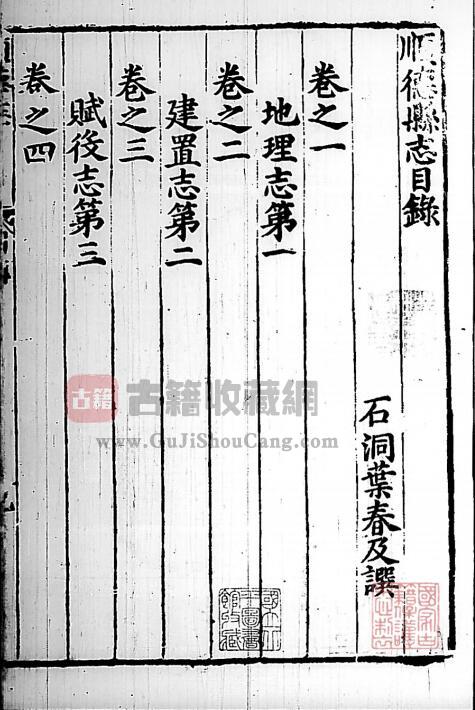 順德縣志目錄
石洞葉春及譔
卷之一
地理志第一
卷之二
建置志第二
卷之三
賦役志第三
卷之四
古籍
古籍收藏網
www.GuJiShouCang.com